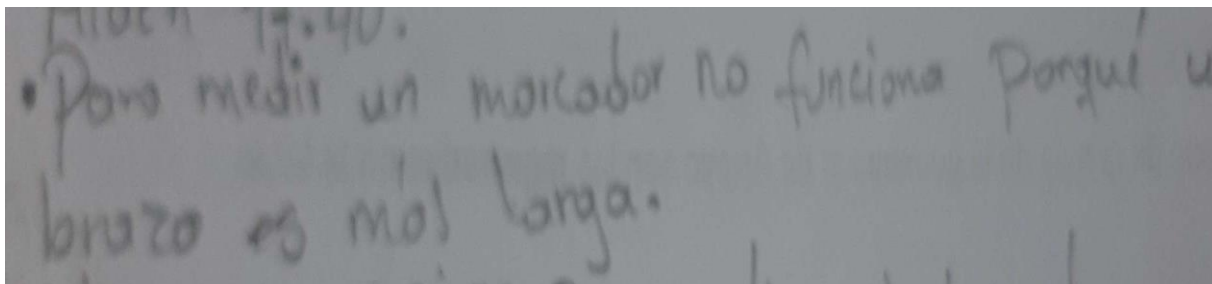 17.40.
• Para medir un marcador no funciona Porqué u
brazo es más larga.